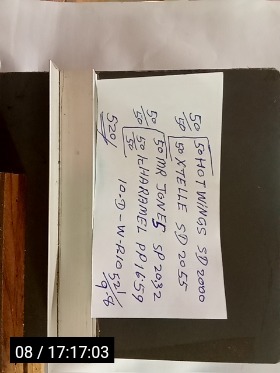 50 50 HOTWINGS SD 2000
50 50 XTELLE SD 2055
50 50 MR JONES SP 2032
50 50 KHARAMEL PP 1659
520/ 10.D-W-R10 52/
9.8
08 / 17:17:03